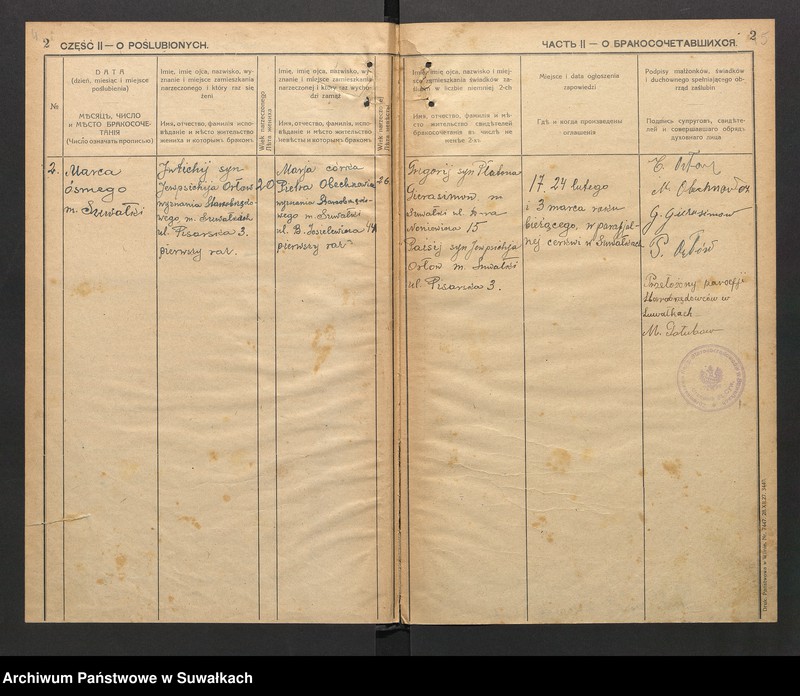 2 CZĘŚĆ II — O POŚLUBIONYCH.
ЧАСТЬ II — О БРАКОСОЧЕТАВШИХСЯ. 2
№
DATA
(dzień, miesiąc i miejsce
poślubienia)
МѢСЯЦЪ, ЧИСЛО
и МѢСТО БРАКОСОЧЕ-
ТАНІЯ
(Число означать прописью)
Imię, imię ojca, nazwisko, wy-
znanie i miejsce zamieszkania
narzeczonego i który raz się
żeni
Имя, отчество, фамилія испо-
вѣданіе и мѣсто жительство
жениха и которымъ бракомъ
Wiek narzeczonego
Лѣта жениха
Imię, imię ojca, nazwisko, wy-
znanie i miejsce zamieszkania
narzeczonej i który raz wycho-
dzi zamąż
Имя, отчество, фамилія, испо-
вѣданіе и мѣсто жительство
невѣсты и которымъ бракомъ
Wiek narzeczonej
Лѣта невѣсты
Imię, imię ojca, nazwisko i miej-
sce zamieszkania świadków za-
ślubin w liczbie niemniej 2-ch
Имя, отчество, фамилія и мѣ-
сто жительство свидѣтелей
бракосочетанія въ числѣ не
менѣе 2-хъ
Miejsce i data ogłoszenia
zapowiedzi
Гдѣ и когда произведены
оглашенія
Podpisy małżonków, świadków
i duchownego spełniającego ob-
rząd zaślubin
Подпись супруговъ, свидѣте-
лей и совершавшаго обрядъ
духовнаго лица
2.
Marca
ósmego
m. Suwałki
syn
Orłow
wyznania Staroobrzędo-
wego m. Suwałki
ul. Pisarska 3.
pierwszy raz.
20
Marja córka
Piotra
wyznania Staroobrzędo-
wego m. Suwałki
ul. B. Joselewicza 44
pierwszy raz
26
Grigorij syn
Gierasimow m
Suwałki ul. d-ra
Noniewicza 15
Paisij syn
Orłow m. Suwałki
ul. Pisarska 3.
17. 24 lutego
i 3 marca roku
bieżącego, w parafjal-
nej cerkwi w Suwałkach
G. Gierasimow
Przełożony parafji
Staroobrzędowców w
Suwałkach
Druk. Państwowa w Wilnie, Nr. 7447.
Archiwum Państwowe w Suwałkach